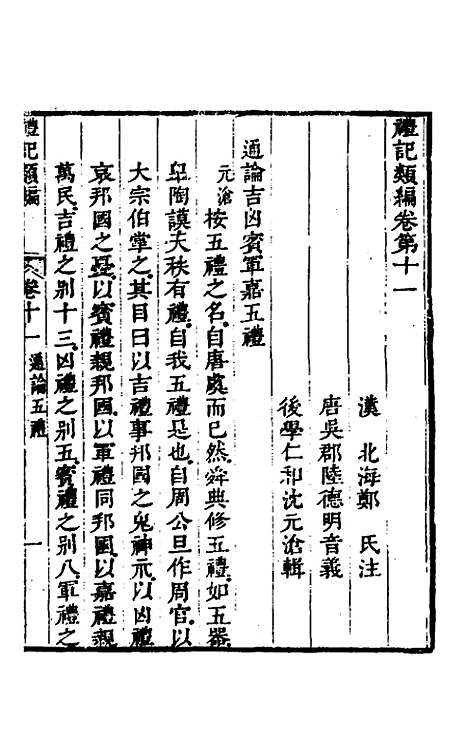 禮記類編卷第十一
漢 北海鄭 氏注
唐吳郡陸德明音義
後學仁和沈元滄輯
通論吉凶賓軍嘉五禮
元滄按五禮之名自唐虞而已然舜典修五禮如五器
臯陶謨天秩有禮自我五禮是也自周公旦作周官以
大宗伯掌之其目曰以吉禮事邦國之鬼神示以凶禮
哀邦國之憂以賓禮親邦國以軍禮同邦國以嘉禮親
萬民吉禮之別十三凶禮之別五賓禮之別八軍禮之
禮記類編 卷十一 通論五禮 一